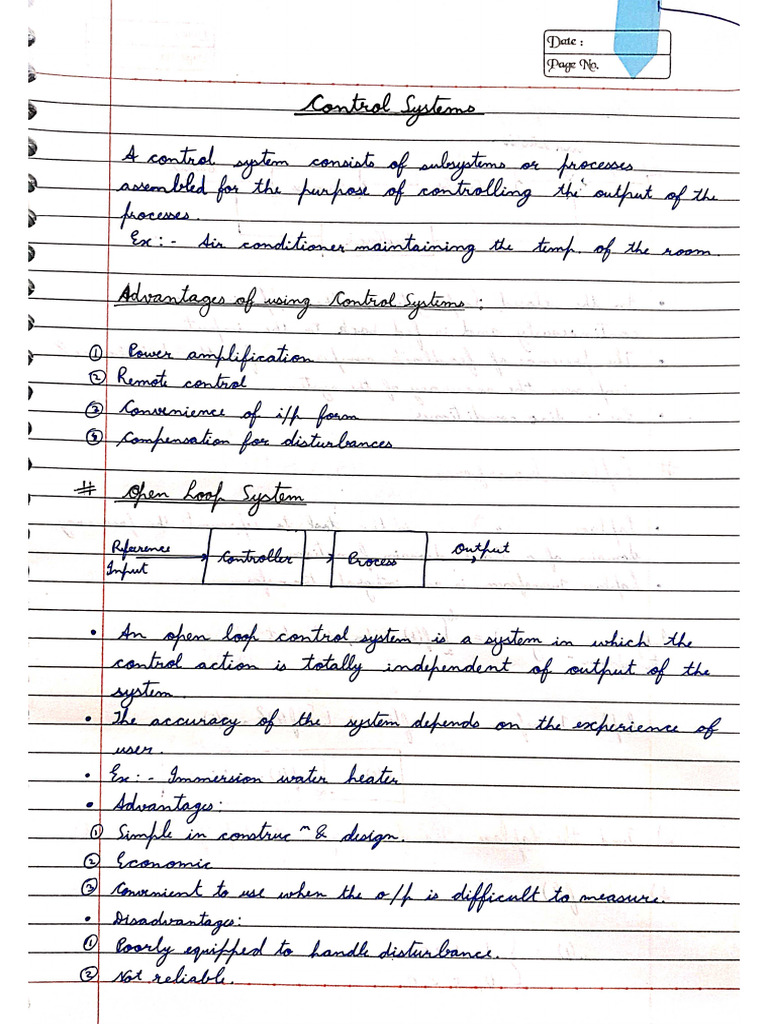 Date :
Page No.
Control Systems
A control system consists of subsystems or processes
assembled for the purpose of controlling the output of the
processes.
Ex : - Air conditioner maintaining the temp. of the room.
Advantages of using Control Systems :
① Power amplification
② Remote control
③ Convenience of i/p form
④ Compensation for disturbances
# Open Loop System
Reference
Input
Controller
Process
Output
• An open loop control system is a system in which the
control action is totally independent of output of the
system.
• The accuracy of the system depends on the experience of
user.
• Ex : - Immersion water heater
• Advantages :
① Simple in construcⁿ & design.
② Economic
③ Convinient to use when the o/p is difficult to measure.
• Disadvantages :
① Poorly equipped to handle disturbance.
② Not reliable.